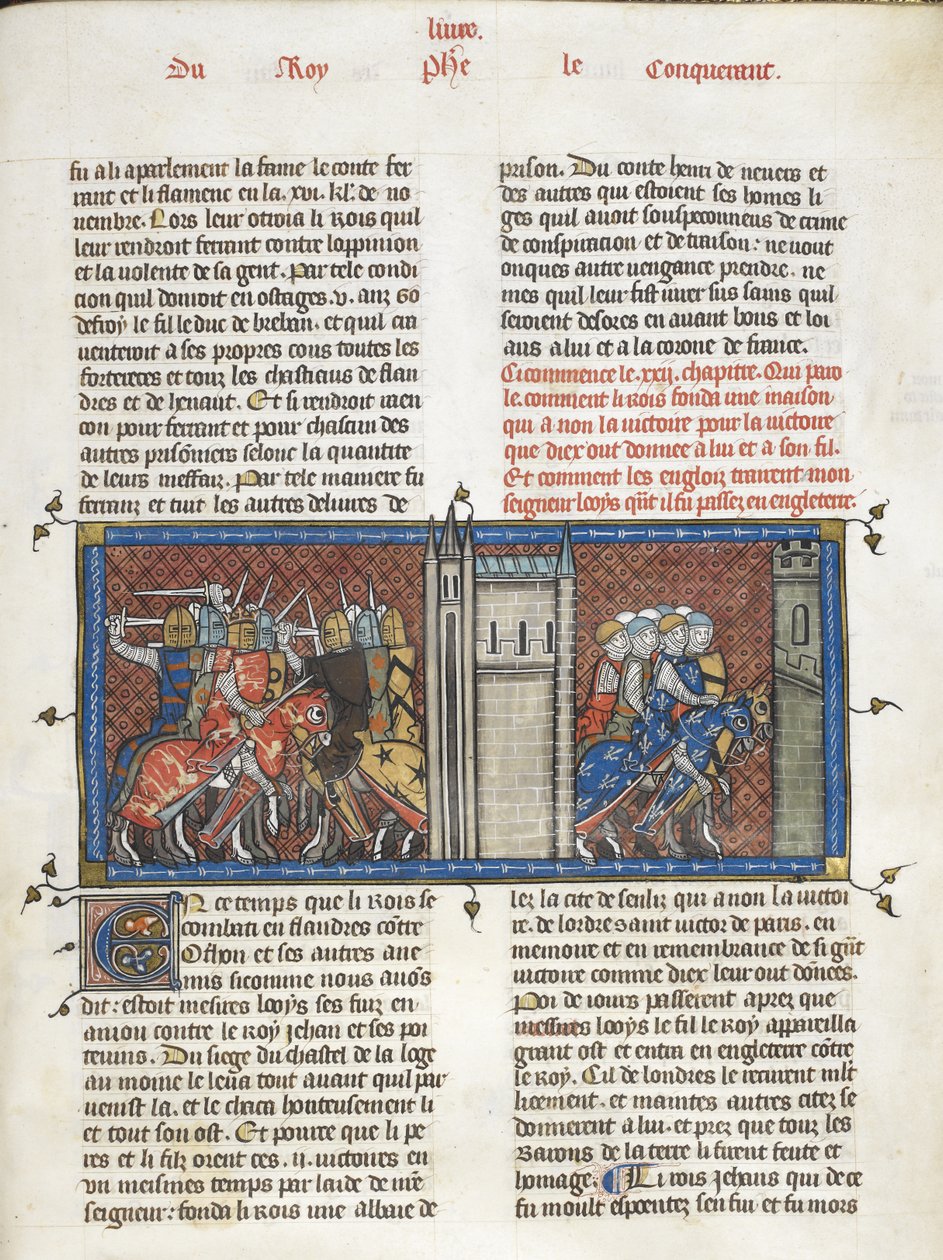 liure.
Du Roy Phe le Conquerant.
fu a li a parlement la fame le conte fer
rant et li flamenc en la .xvi. kl. de no
uembre. Lors leur otroia li Rois quil
leur rendroit ferrant contre loppinion
et la uolente de sa gent. Par tele condi
cion quil donroit en ostages .v. anz Go
defroy le fil le duc de breban. et quil cra
uenteroit a ses propres cous toutes les
fortereces et touz les chastiaus de flan
dres et de henaut. Et si rendroit raen
con pour ferrant et pour chascun des
autres prisonniers selonc la quantite
de leurs meffaiz. Par tele maniere fu
ferranz et tuit les autres deliures de
prison. Du conte henri de neuers et
des autres qui estoient ses homes li
ges quil auoit souspeconneus de crime
de conspiration et de traison: ne uout
onques autre uengance prendre. ne
mes quil leur fist iurer sus sains quil
seroient desores en auant bons et loi
aus a lui et a la corone de france.
Ci commence le .xxij. chapitre. Qui paro
le. comment li rois fonda une maison
qui a non la uictoire pour la uictoire
que diex out donnee a lui et a son fil.
Et comment les englois trairent mon
seigneur looys qnt il fu passez en engleterre.
En ce temps que li Rois se
combati en flandres contre
Othon et ses autres ane
mis si comme nous auons
dit: estoit mesires looys ses fiuz en
aniou contre le Roy Jehan et ses poi
teuins. Du siege du chastel de la loge
au moine le leua tout auant quil par
uenist la. et le chaca honteusement li
et tout son ost. Et pource que li pe
res et li filz orent ces .ij. uictoires en
vn meismes temps par laide de nre
seigneur: fonda li rois une abbaie de
lez la cite de senliz qui a non la uictoi
re. de lordre saint victor de paris. en
memoire et en remembrance de si grant
uictoire comme diex leur out donnees.
Poi de iours passerent aprez que
messires looys le fil le Roy appareilla
grant ost et entra en engleterre contre
le Roy. Cil de londres le recurent mlt
liement. et maintes autres citez se
donnerent a lui. et prez que touz les
Barons de la terre li firent feute et
homage. Li rois Jehans qui de ce
fu moult espoentez sen fui et fu mors